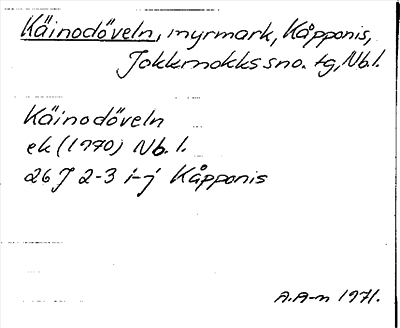 Käinodöveln, myrmark, Kåpponis,
Jokkmokks sno. tg, Nb.l.
Käinodöveln
ek (1970) Nb. l.
26 J 2-3 i-j Kåpponis
A.A-m 1971.